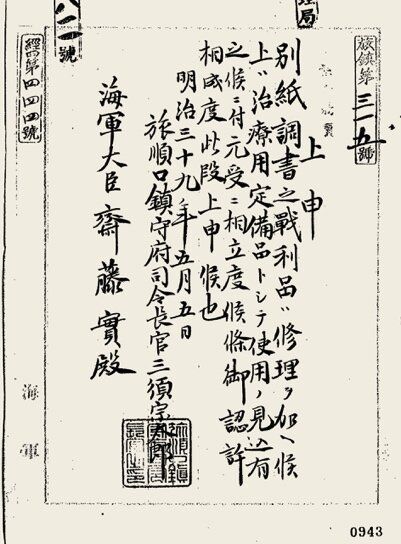 旅鎮第三一五號
上申
別紙調書之戰利品ハ修理ヲ加ヘ候
上ハ治療用定備品トシテ使用ノ見込有
之候ニ付元受ニ相立度候條御認許
相成度此段上申候也
明治三十九年五月五日
旅順口鎮守府司令長官三須宗太郎
海軍大臣齋藤實殿
理局
八二號
經第四四四號
海軍
0943